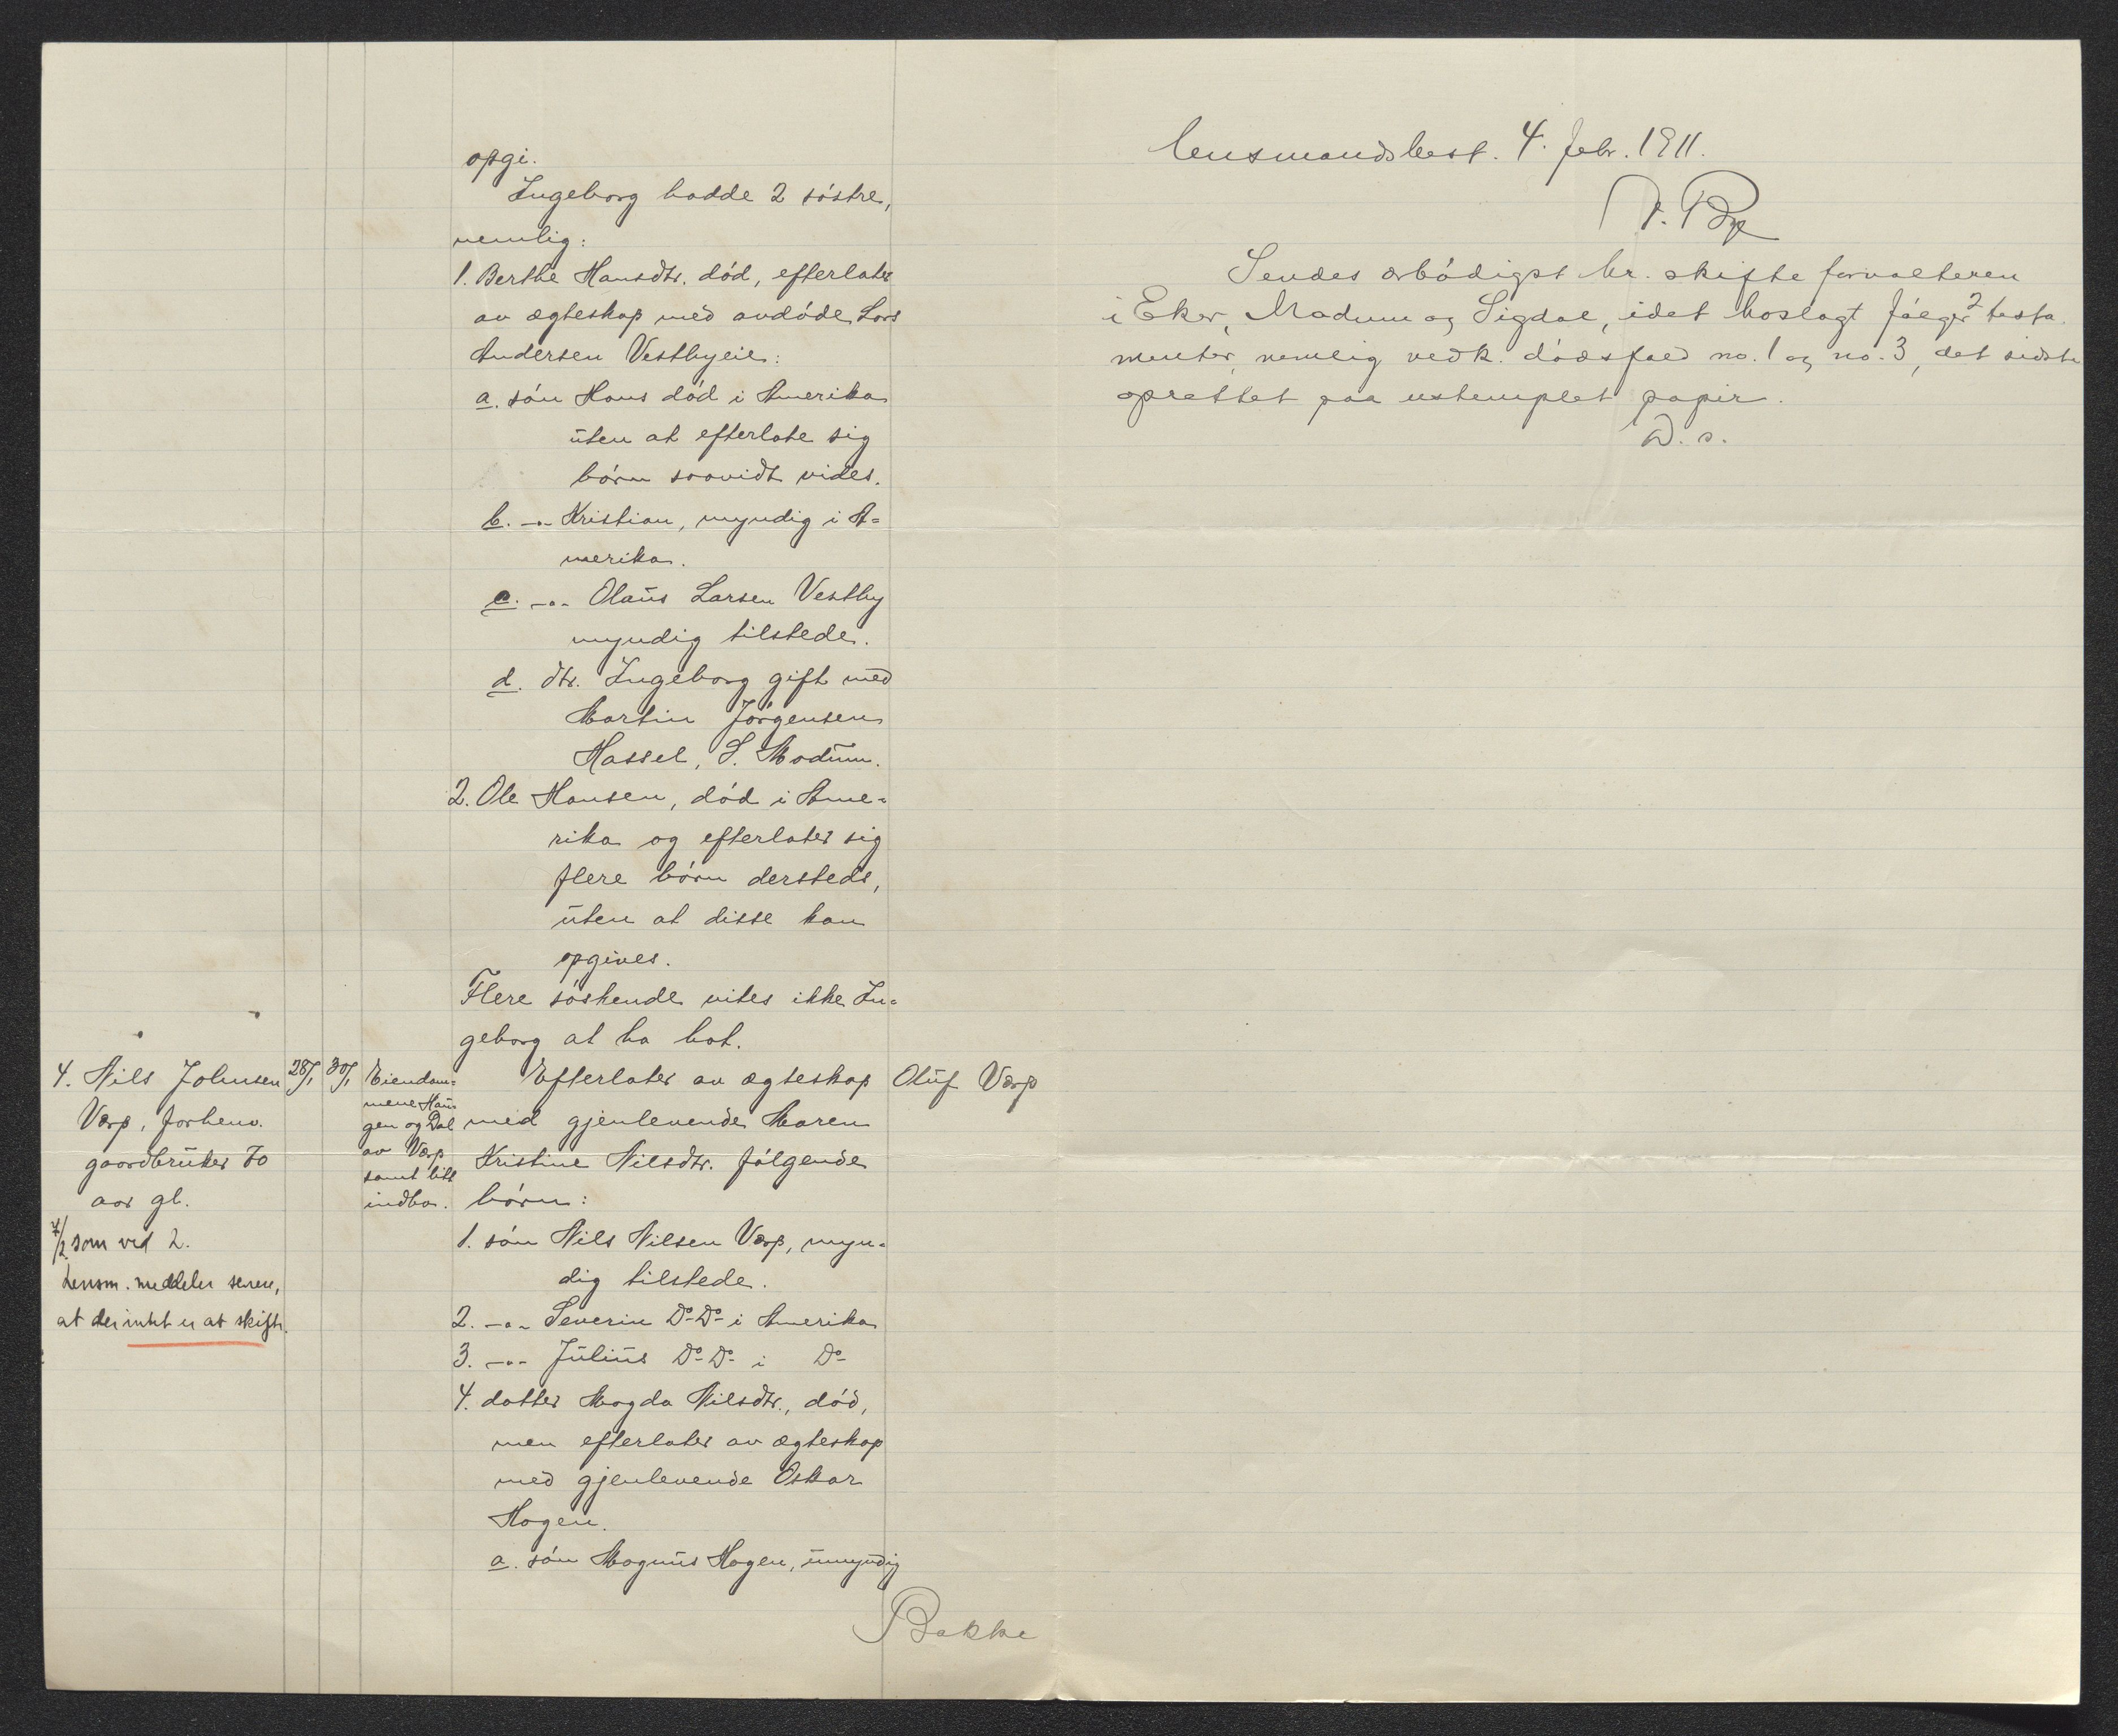 opgi.
Ingeborg hadde 2 søstre,
nemlig:
1. Berthe Hansdtr. død, efterlater
av ægteskap med avdøde Lars
Andersen Vestbyeie:
a. søn Hans død i Amerika
uten at efterlate sig
børn saavidt vides.
b. -"- Kristian, myndig i A=
merika.
c. -"- Olaus Larsen Vestby
myndig tilstede.
d. dtr. Ingeborg gift med
Martin Jørgensen
Hassel, S. Modum.
2. Ole Hansen, død i Ame=
rika og efterlater sig
flere børn dersteds,
uten at disse kan
opgives.
Flere søskende vites ikke In=
geborg at ha hat.
4. Nils Johnsen
Varp, forhenv.
gaardbruker 70
aar gl.
7/2 som ved 2.
Lensm. meddeler senere,
at der intet er at skifte.
28/1
30/1
Eiendom=
mene Hau=
gen og Dal
av Varp
samt litt
indbo.
Efterlater av ægteskap
med gjenlevende Maren
Kristine Nilsdtr. følgende
børn:
1. søn Nils Nilsen Varp, myn=
dig tilstede.
2. -"- Severin Do Do i Amerika
3. -"- Julius Do Do i Do
4. datter Magda Nilsdtr., død,
men efterlater av ægteskap
med gjenlevende Oskar
Hagen.
a. søn Magnus Hagen, umyndig
Oluf Varp
Bakke
Lensmandsbest. 4. febr. 1911.
Sendes ærbødigst hr. skifteforvalteren
i Eker, Modum og Sigdal, idet hoslagt følger 2 testa
menter, nemlig vedk. dødsfald no. 1 og no. 3, det sidste
oprettet paa ustemplet papir.
D. s.